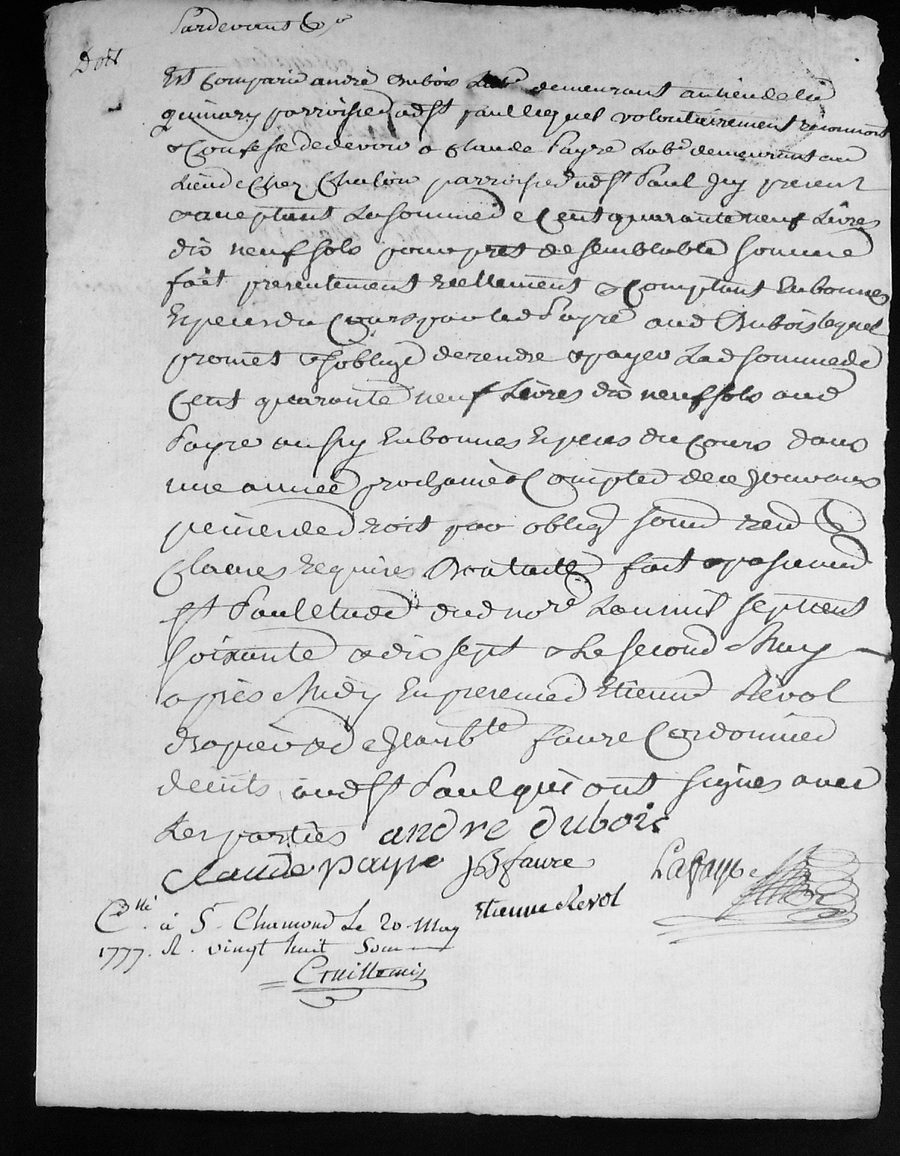 Pardevant &c
Dott
Est Comparu andré Dubois Labr demeurant au lieu de la
quinary parroisse dudt St paul lequel volontairement reconnoit
& Confesse de devoir a Claude Payre Labr demeurant au
Lieu de Chez Chalon parroisse dudt St Paul Icy present
& acceptant La somme de Cent quarante neuf Livres
dix neuf sols pour pret de semblable somme
fait presentement reellement & Comptant En bonnes
Especes du Cours par led Payre aud Dubois lequel
promet & s'oblige de rendre & payer Lad somme de
Cent quarante neuf Livres dix neuf sols aud
Payre aussy En bonnes Especes du Cours dans
une année prochaine a Compter de ce Jourdhuy
peine de droit par oblig soum renon &c
Clauses requises Dont acte fait & passé aud
St Paul Etude dud nore Lan mil sept cent
soixante & dix sept & Le second May
apres Midy En presence de Etienne Révol
Drapier & de Jean bte faure Cordonnier
de cuits aud St Paul qui ont signés avec
Les parties andre dubois
Claude payre JB faure Lafay
Etienne Revol
Clle à St. Chamond Le 20. May
1777. R. vingt huit Sous